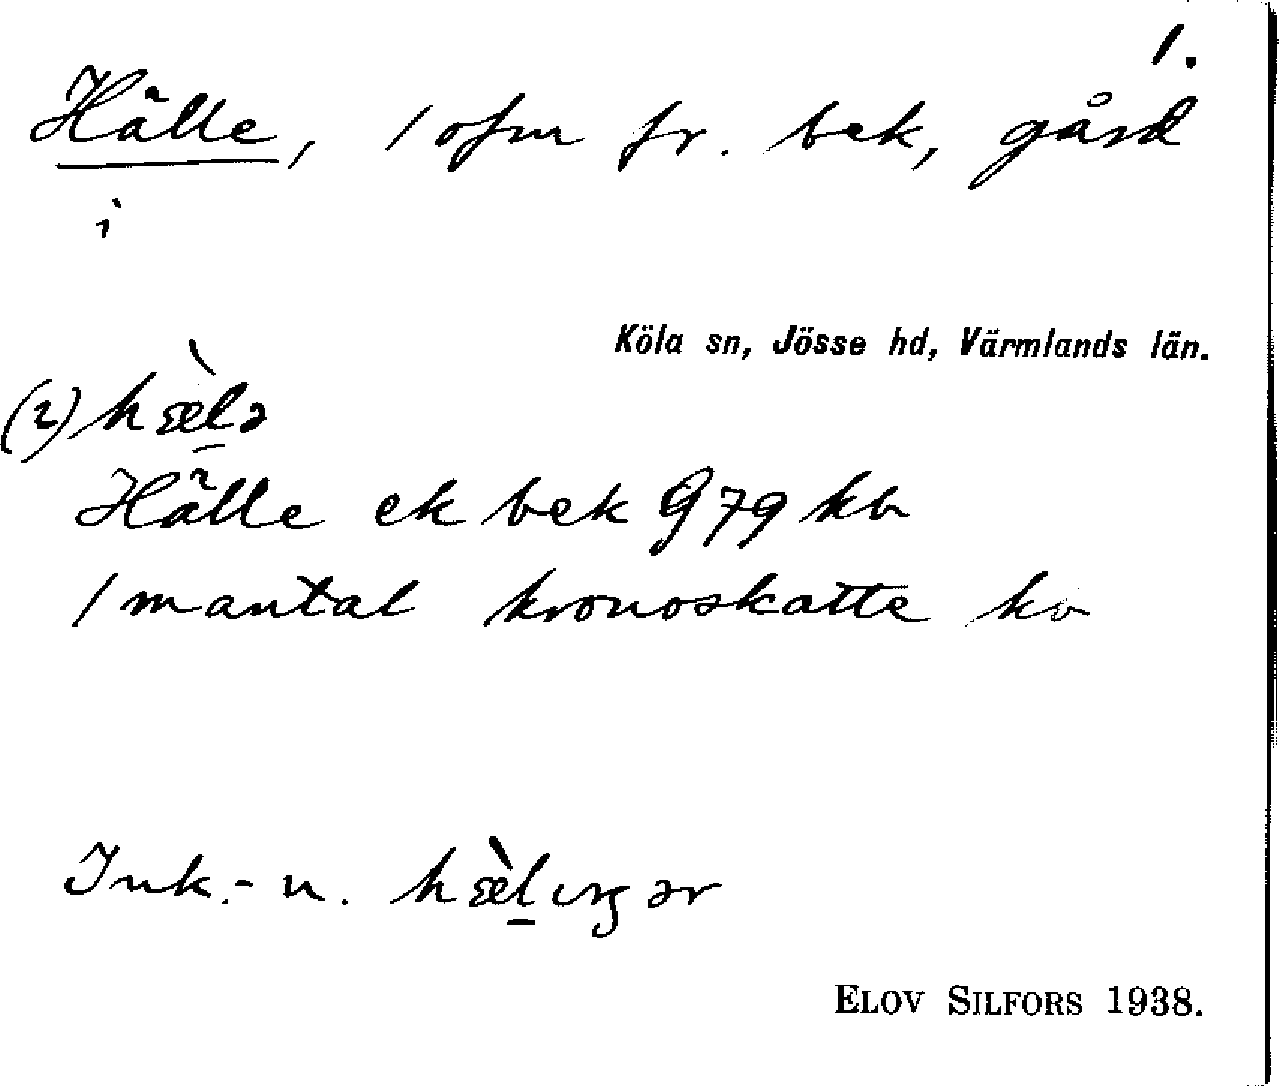 1.
Hälle, 1 ofm fr. bek, gård
i
Köla sn, Jösse hd, Värmlands län.
(2) hæ̀l̠ə
Hälle ek bek G 79 kb
1 mantal kronoskatte kb
Ink.-n. hæ̀l̠ıŋər
ELOV SILFORS 1938.